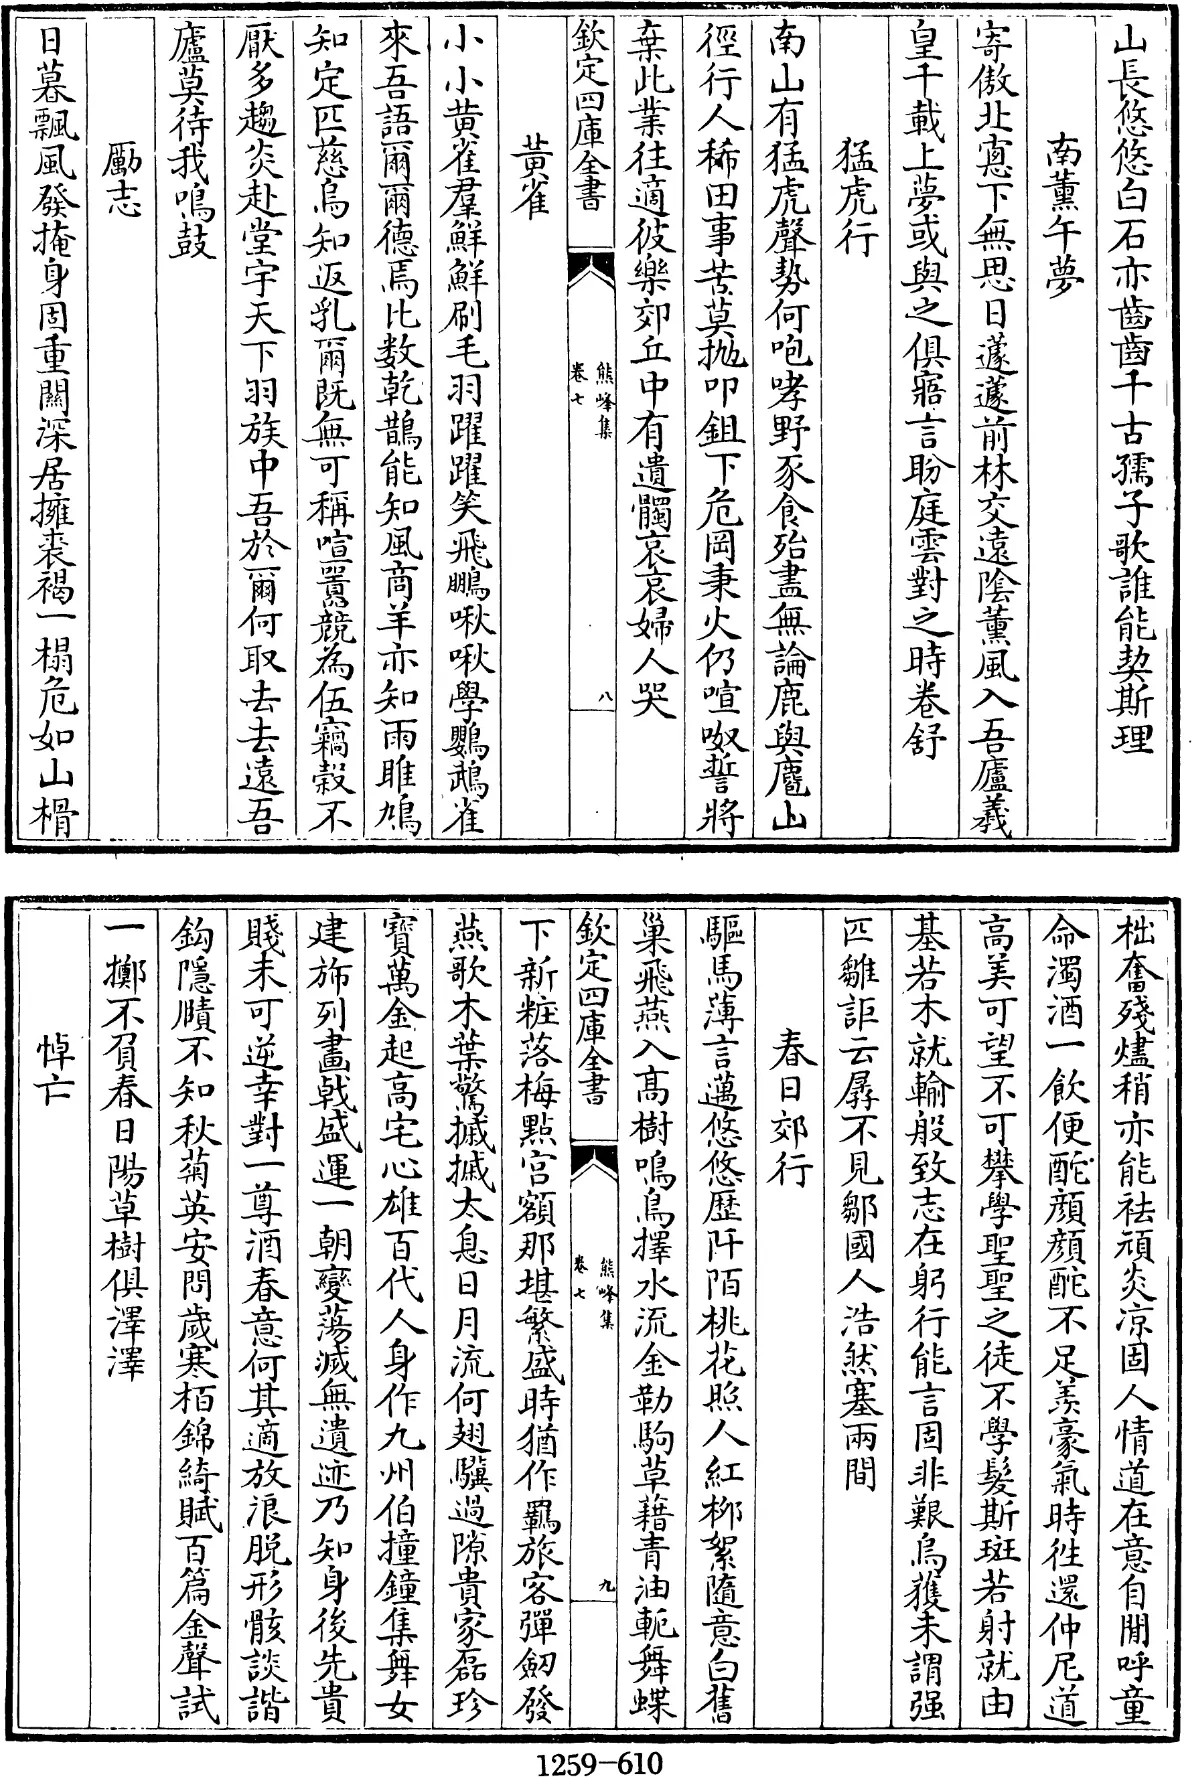 山長悠悠白石亦齒齒千古孺子歌誰能契斯理
南薰午夢
寄傲北窻下無思日蘧蘧前林交遠陰薰風入吾廬羲
皇千載上夢或與之俱寤言盼庭雲對之時卷舒
猛虎行
南山有猛虎聲勢何咆哮野豕食殆盡無論鹿與麏山
徑行人稀田事苦莫抛叩鉏下危岡秉火仍喧呶誓將
棄此業往適彼樂郊丘中有遺髑哀哀婦人哭
欽定四庫全書
熊峰集
卷七
八
黄雀
小小黄雀羣鮮鮮刷毛羽躍躍笑飛鵬啾啾學鸚鵡雀
來吾語爾爾德焉比數乾鵲能知風商羊亦知雨雎鳩
知定匹慈烏知返乳爾既無可稱喧囂競為伍竊穀不
厭多趨炎赴堂宇天下羽族中吾於爾何取去去遠吾
廬莫待我鳴鼓
勵志
日暮飄風發掩身固重關深居擁裘褐一榻危如山榾
柮奮殘燼稍亦能袪頑炎凉固人情道在意自閒呼童
命濁酒一飲便酡顔顔酡不足羨豪氣時徃還仲尼道
高美可望不可攀學聖聖之徒不學髮斯斑若射就由
基若木就輸般致志在躬行能言固非艱烏獲未謂强
匹雛詎云孱不見鄒國人浩然塞兩間
春日郊行
驅馬薄言邁悠悠歷阡陌桃花照人紅柳絮隨意白舊
巢飛燕入高樹鳴鳥擇水流金勒駒草藉青油軛舞蝶
欽定四庫全書
熊峰集
卷七
九
下新粧落梅點宫額那堪繁盛時猶作羈旅客彈劒發
燕歌木葉驚摵摵太息日月流何翅驥過隙貴家磊珍
寶萬金起高宅心雄百代人身作九州伯撞鐘集舞女
建斾列畫戟盛運一朝變蕩滅無遺迹乃知身後先貴
賤未可逆幸對一尊酒春意何其適放浪脱形骸談諧
鈎隱賾不知秋菊英安問歲寒栢錦綺賦百篇金聲試
一擲不負春日陽草樹俱澤澤
悼亡
1259-610